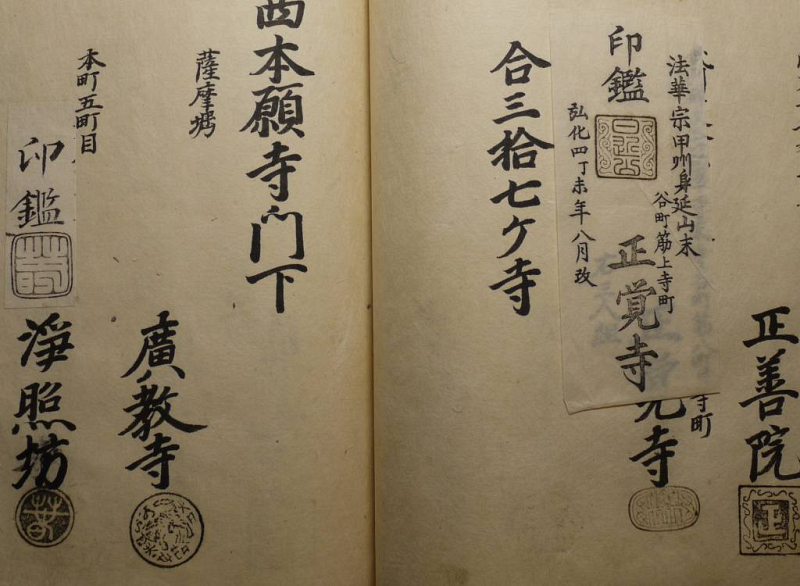 正善院
寺町
寺
法華宗甲州身延山末
谷町筋上寺町
印鑑
正覚寺
弘化四丁未年八月改
合三拾七ケ寺
西本願寺門下
薩摩堀
廣教寺
本町五町目
印鑑
淨照坊